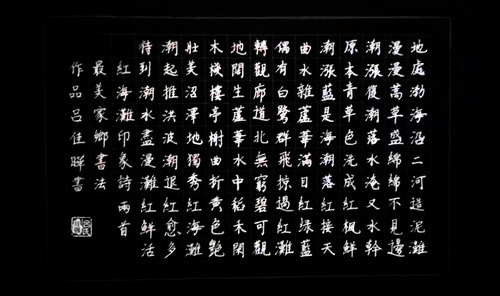 地處渤海沿二河造泥灘
漫漫萬草盛綿綿不見邊
潮漲覆潮落水淹又水幹
原本青草色洗成紅楓鮮
潮漲藍是海潮落紅接天
曲水雜蘆葦滿目紅綠藍
偶有白鷺群飛掠過紅灘
轉觀廊道北無窮碧可觀
地間生蘆葦水中稻木閑
木棧樓亭榭曲折黃色艷
壯美沼澤地獨秀紅海灘
潮起推洪波潮退紅愈多
待到潮水盡漫灘紅鮮活
紅海灘印象詩兩首
最美家鄉書法
作品呂佳聯書